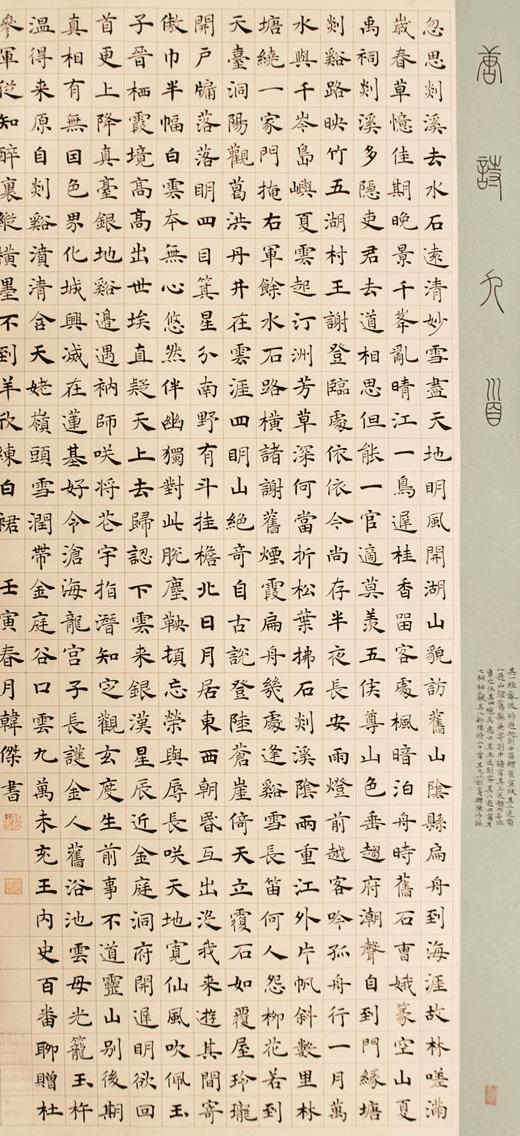 唐詩九首
忽思剡溪去水石遠清妙雪盡天地明風開湖山貌訪舊山陰縣扁舟到海涯故林嗟滿
歲春草憶佳期晚景千峯亂晴江一鳥遲桂香留客處楓暗泊舟時舊石曹娥篆空山夏
禹祠剡溪多隱吏君去道相思但能一官適莫羨五侯尊山色垂趨府潮聲自到門緣塘
剡谿路映竹五湖村王謝登臨處依依今尚存半夜長安雨燈前越客吟孤舟行一月萬
水與千岑島嶼夏雲起汀洲芳草深何當折松葉拂石剡溪陰兩重江外片帆斜數里林
塘繞一家門掩右軍餘水石路橫諸謝舊煙霞扁舟幾處逢谿雪長笛何人怨柳花若到
天臺洞陽觀葛洪丹井在雲涯四明山絕奇自古說登陸蒼崖倚天立覆石如覆屋玲瓏
開戶牖落落明四目箕星分南野有斗挂檐北日月居東西朝昏互出沒我來遊其間寄
傲巾半幅白雲本無心悠然伴幽獨對此脫塵鞅頓忘榮與辱長咲天地寬仙風吹佩玉
子晉栖霞境高高出世埃直疑天上去歸認下雲来銀漢星辰近金庭洞府開遲明欲回
首更上降真臺銀地谿邊遇衲師咲將花宇指潛知定觀玄度生前事不道靈山別後期
真相有無因色界化城興滅在蓮基好令滄海龍宮子長護金人舊浴池雲母光籠玉杵
溫得来原自剡谿濆清含天姥嶺頭雪潤帶金庭谷口雲九萬未充王內史百番聊贈杜
參軍從知醉裏縱橫墨不到羊欣練白裙 壬寅春月韓傑書